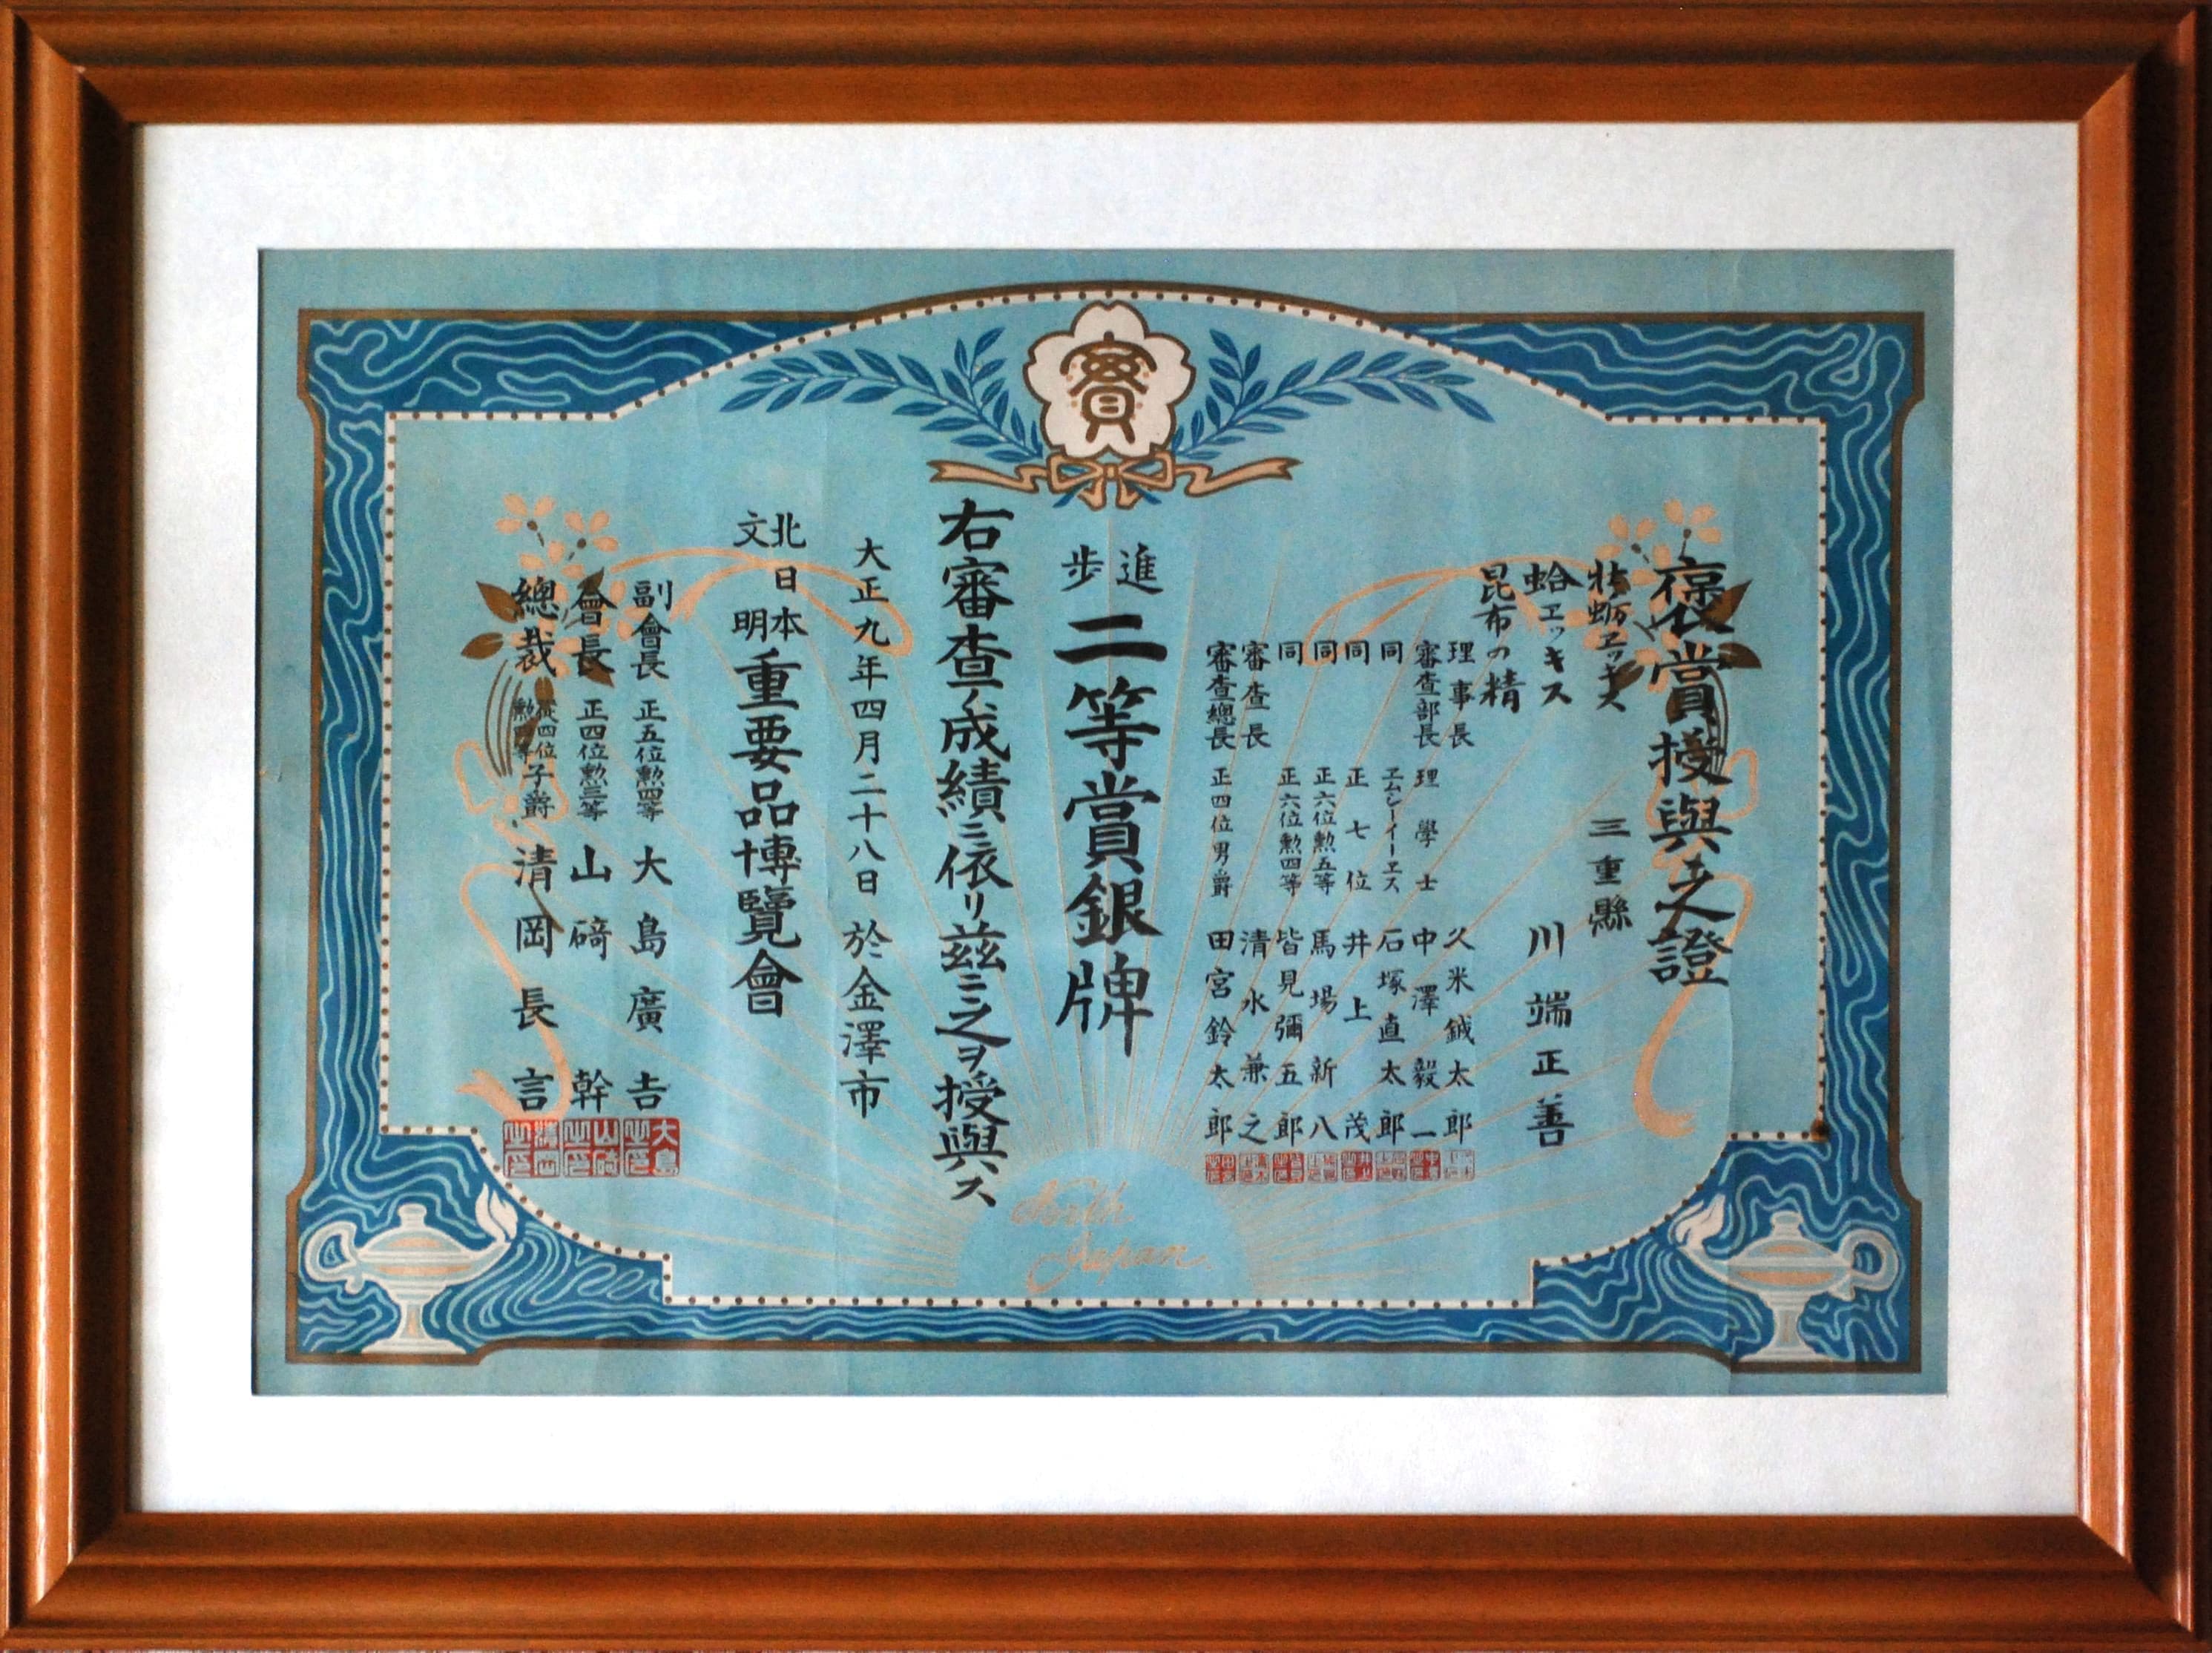 賞
褒賞授與之證
牡蛎エッキス
三重縣
蛤エッキス
川端正善
昆布の精
理事長 久米鉞太郎
審査部長 理學士 中澤毅一
同 エムシーイーエス 石塚直太郎
同 正七位 井上茂
同 正六位勲五等 馬場新八
同 正六位勲四等 皆見彌五郎
審査長 清水兼之
審査總長 正四位男爵 田宮鈴太郎
進歩 二等賞銀牌
右審査ノ成績ニ依リ茲ニ之ヲ授與ス
大正九年四月二十八日 於金澤市
北日本文明重要品博覽會
副會長 正五位勲四等 大島廣吉
會長 正四位勲三等 山碕幹
總裁 從四位勲四等子爵 清岡長言
North
Japan